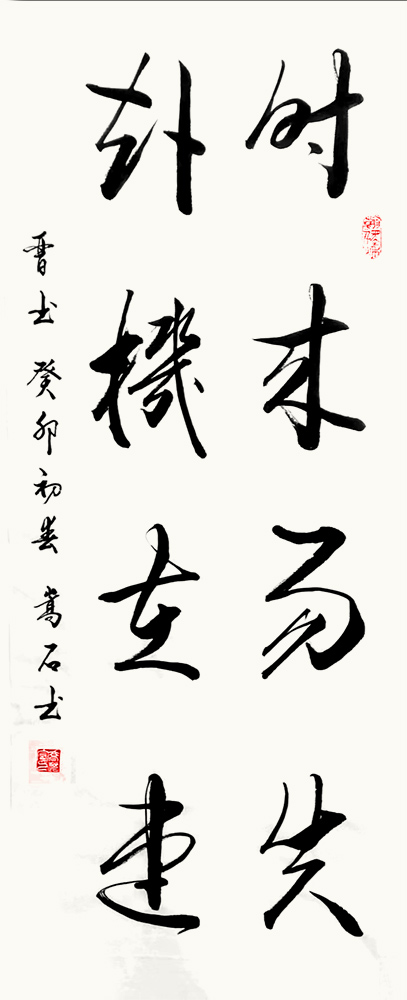 时来易失
赴機在速
晋书 癸卯初春 嵩石书